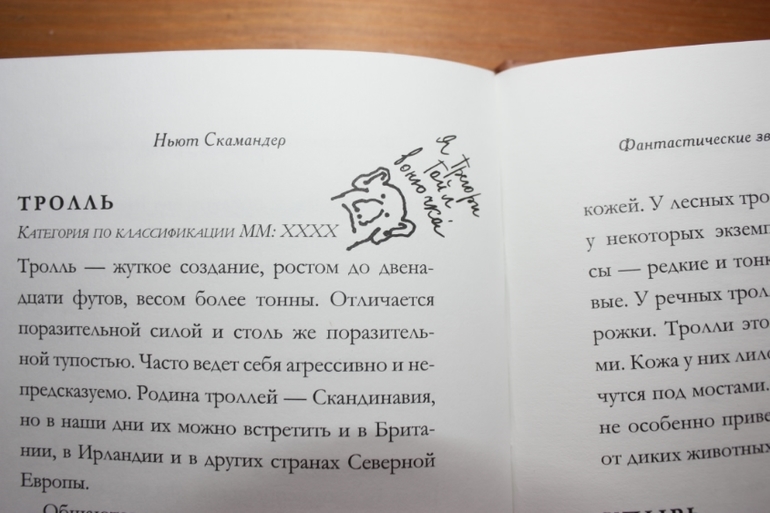 Ньют Скамандер
я Грегори
Гойл
вонючка
ТРОЛЛЬ
Категория по классификации ММ: XXXX
Тролль — жуткое создание, ростом до двена-
дцати футов, весом более тонны. Отличается
поразительной силой и столь же поразитель-
ной тупостью. Часто ведет себя агрессивно и не-
предсказуемо. Родина троллей — Скандинавия,
но в наши дни их можно встретить и в Брита-
нии, в Ирландии и в других странах Северной
Европы.
Фантастические зв
кожей. У лесных тро
у некоторых экземп
сы — редкие и тонк
вые. У речных трол
рожки. Тролли это
ми. Кожа у них лило
чутся под мостами.
не особенно приве
от диких животных